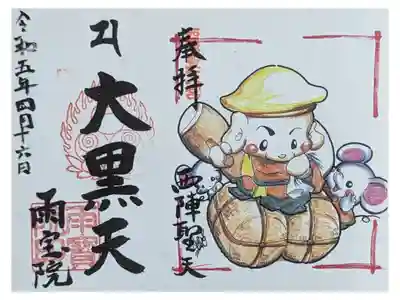 奉拝
西陣聖天
大黒天
雨宝院
令和五年四月十六日